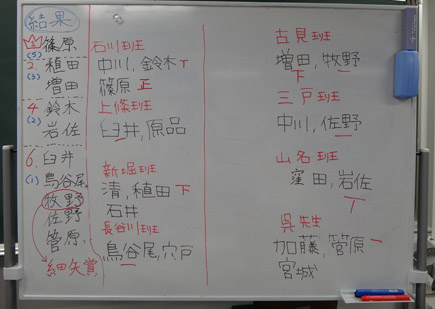 結果
篠原
(5)
2. 植田
(3) 増田
4. 鈴木
(2) 岩佐
6. 臼井
(1) 鳥谷尾
牧野
佐野
菅原
細矢賞
石川班
中川, 鈴木 T
篠原 正
上條班
臼井, 原品
新堀班
清, 植田 下
石井
長谷川班
鳥谷尾, 宍戸
古見班
増田, 牧野
下 一
三戸班
中川, 佐野
一
山名班
窪田, 岩佐
T
呉先生
加藤, 菅原 一
宮城